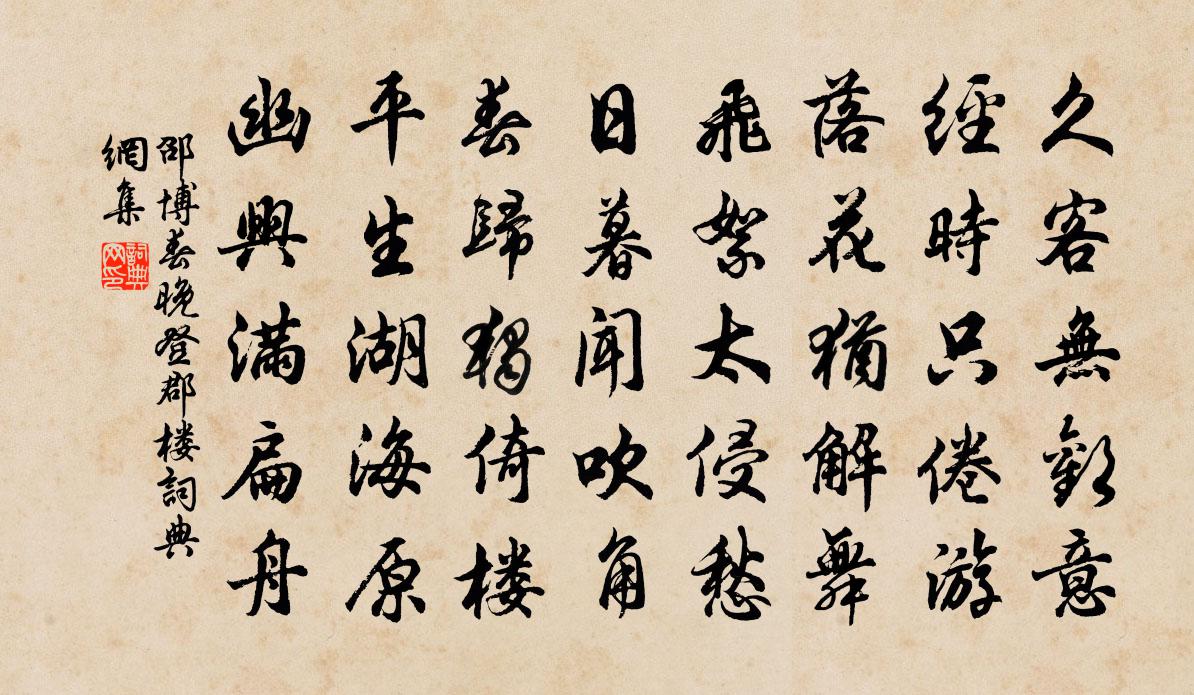 久客無歡意
經時只倦游
落花猶解舞
飛絮太侵愁
日暮聞吹角
春歸獨倚楼
平生湖海原
幽興滿扁舟
邵博春晚登郡楼詞典
網集
詞典
网印